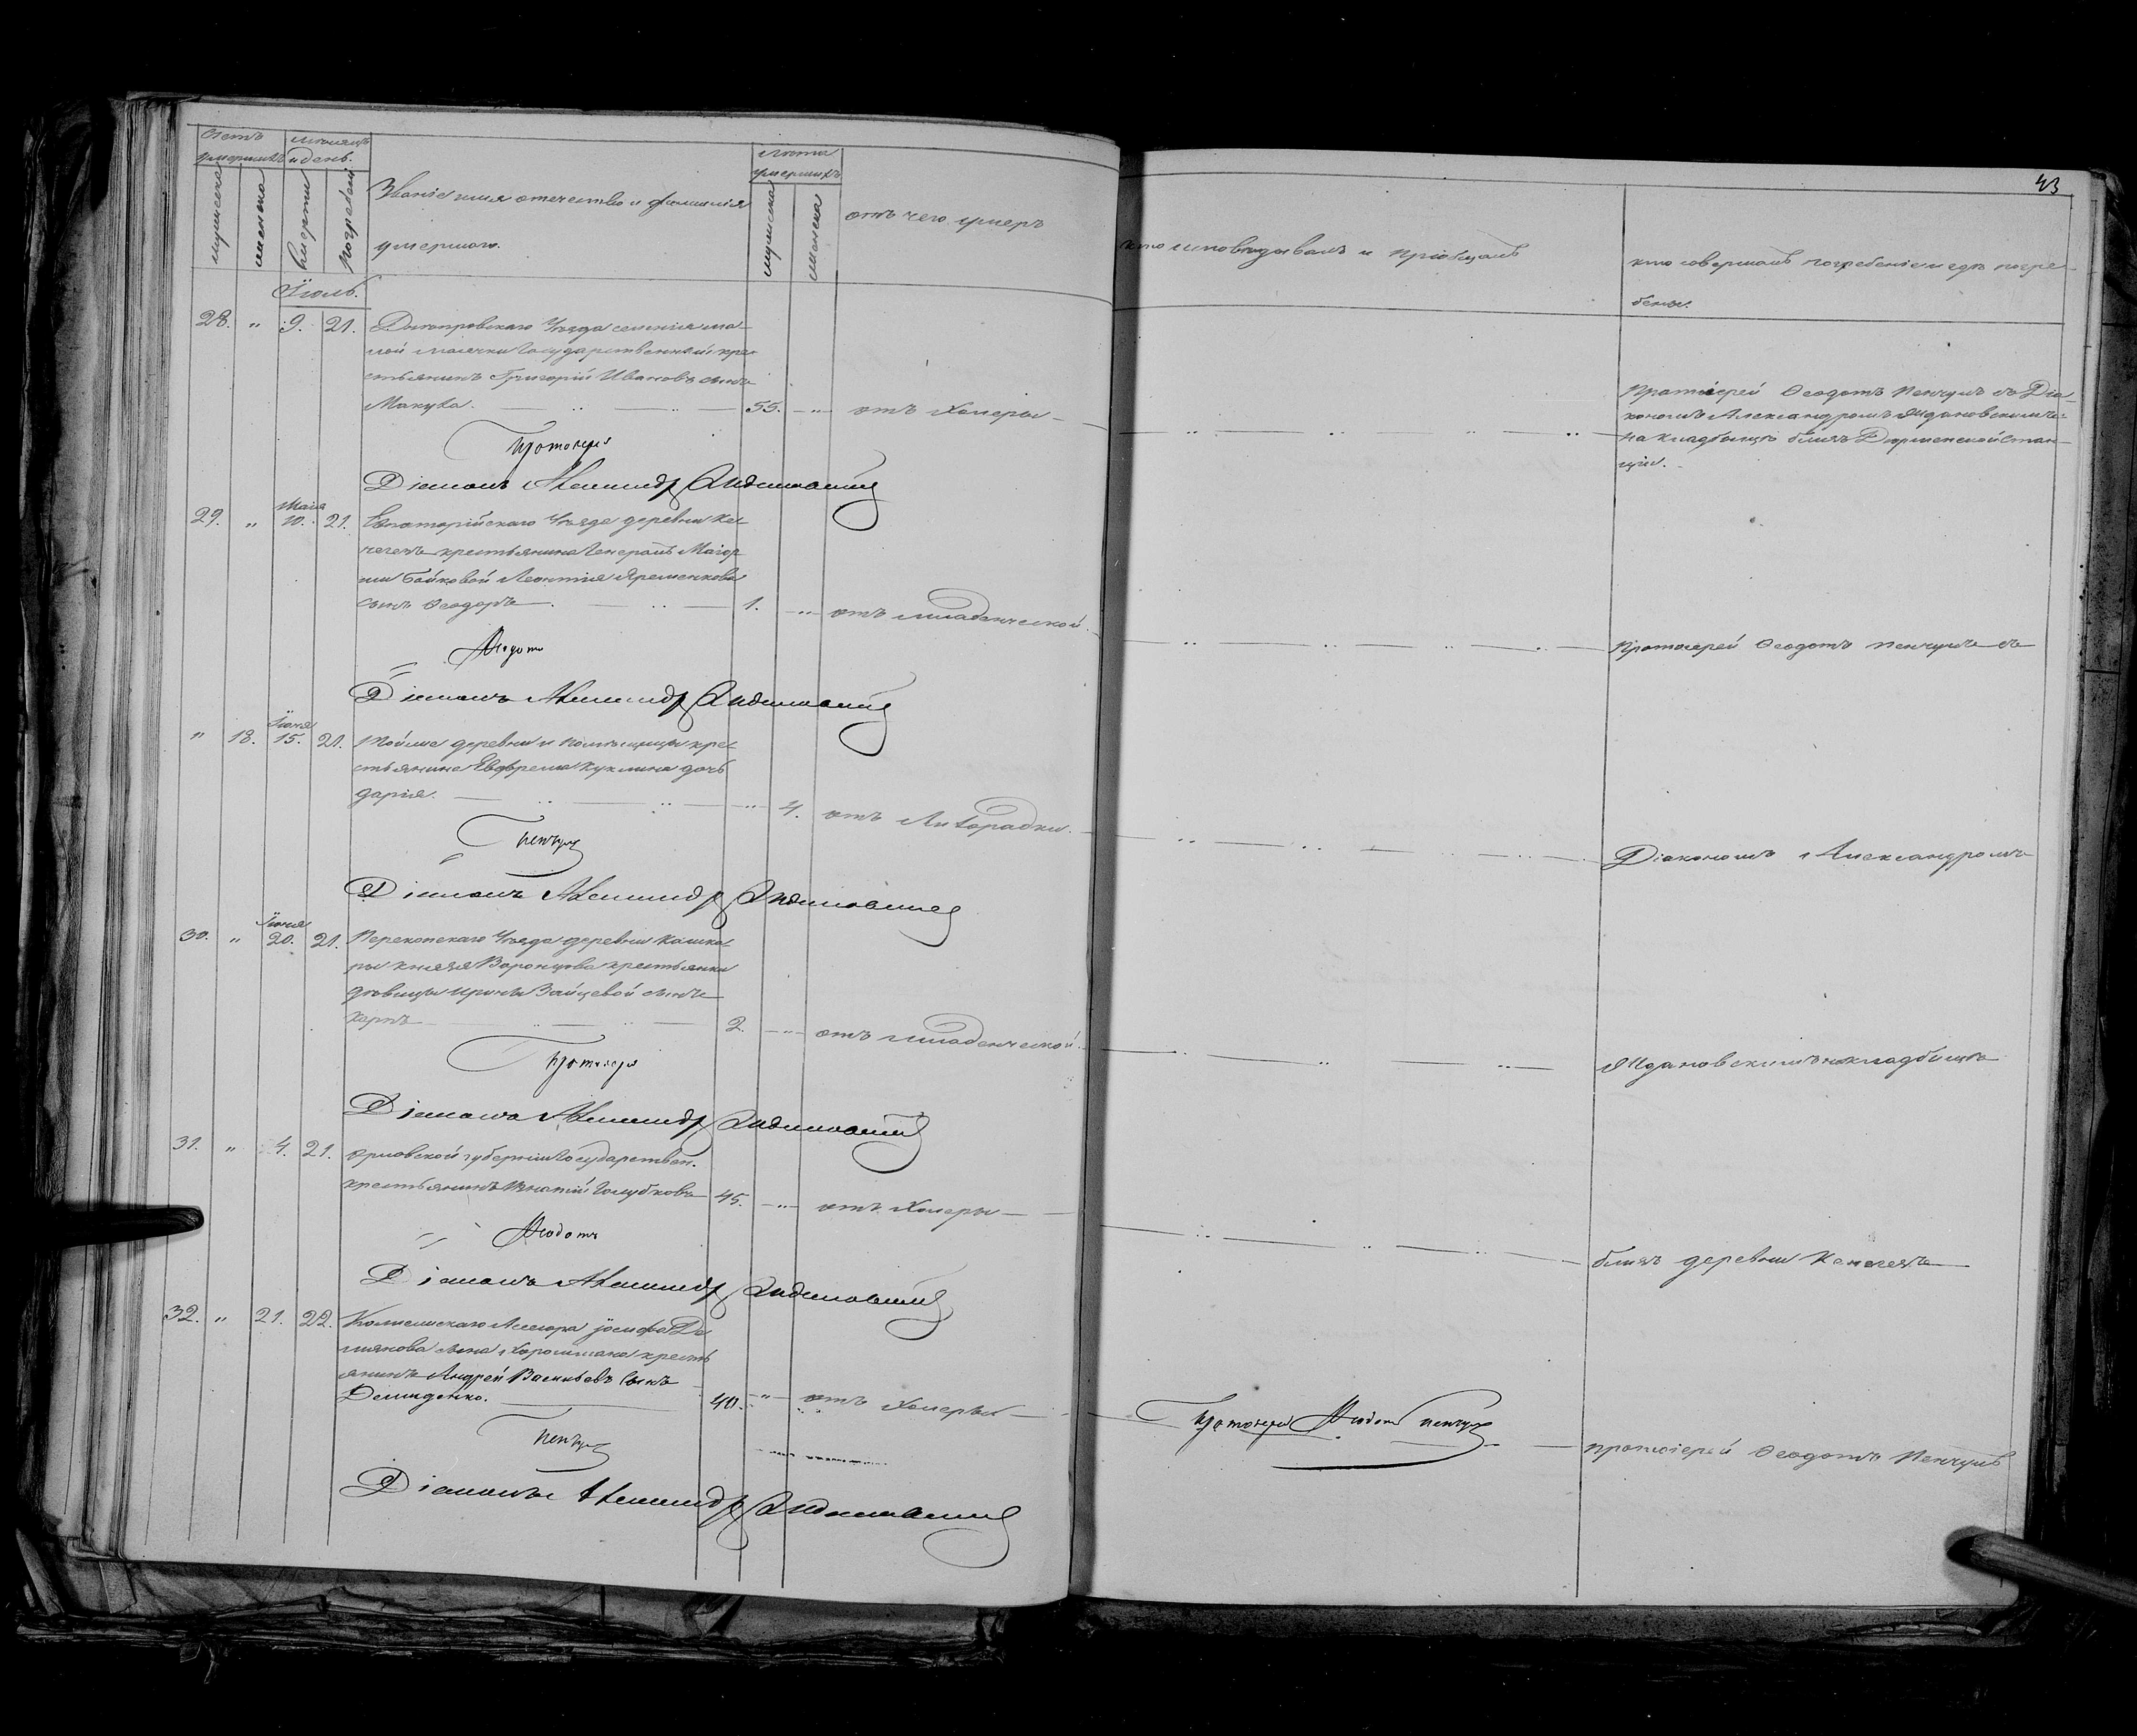 43
Счетъ умершихъ
мѣсяцъ и день.
Званіе имя отечество и фамилія
умершаго.
Лѣта умершихъ
отъ чего умеръ
кто исповѣдывалъ и пріобщалъ
кто совершалъ погребеніе и гдѣ погре-
бены.
мужеска
женска
смерти
погребенія
мужеска
женска
Іюль.
28. " 9. 21. Днепровскаго Уѣзда селенія ма-
лой Маячки Государственный кре-
стьянинъ Григорій Ивановъ сынъ
Макуха. 55. " отъ Холеры
Протоіерей Ѳеодотъ Ненчулъ съ Діа-
кономъ Александромъ Ждановскимъ
на кладбищѣ близь Дюрменской стан-
ціи.
Протоіерей
Діаконъ Александръ Ждановскій
29. " Маія 10. 21. Евпаторійскаго Уѣзда деревни
крестьянина Генералъ Маіор
ши Байковой Леонтія Яременкова
сынъ Ѳеодоръ. 1. " отъ младенческой.
Протоіерей Ѳеодотъ Ненчулъ съ
Ѳеодотъ
Діаконъ Александръ Ждановскій
" 18. Іюня 15. 21. Тойже деревни и помѣщицы кре-
стьянина Куклина дочь
Дарія. " 4. отъ Лихорадки.
Діакономъ Александромъ
Ненчулъ
Діаконъ Александръ Ждановскій
30. " Іюня 20. 21. Перекопскаго Уѣзда деревни Кашка-
ры Князя Воронцова крестьянки
дѣвицы Ирины Зайцевой сынъ
Карпъ 2. " отъ младенческой.
Ждановскимъ на кладбищѣ
Протоіерей
Діаконъ Александръ Ждановскій
31. " 4. 21. Орловской губерніи Государствен.
крестьянинъ Игнатій Голубковъ 45. " отъ Холеры
близь деревни
Ѳеодотъ
Діаконъ Александръ Ждановскій
32. " 21. 22. Колежскаго Асесора Іосифа Де
мьянова сына крестъ
янинъ Андрей Васильевъ сынъ
Демиденко. 40. " отъ Холеры
Протоіерей Ѳеодотъ Ненчулъ
протоіерей Ѳеодотъ Ненчулъ
Ненчулъ
Діаконъ Александръ Ждановскій